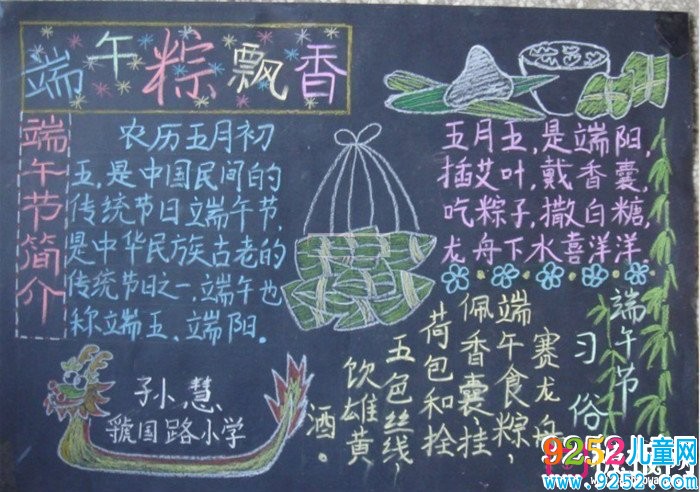 端午粽飘香
端午节简介
农历五月初
五,是中国民间的
传统节日端午节,
是中华民族古老的
传统节日之一,端午也
称端五、端阳。
五月五,是端阳,
插艾叶,戴香囊,
吃粽子,撒白糖,
龙舟下水喜洋洋。
端午节
习俗
赛龙舟
端午食粽,
佩香囊,挂
荷包和拴
五色丝线,
饮雄黄
酒。
孙慧
虢国路小学
9252儿童网
www.9252.com